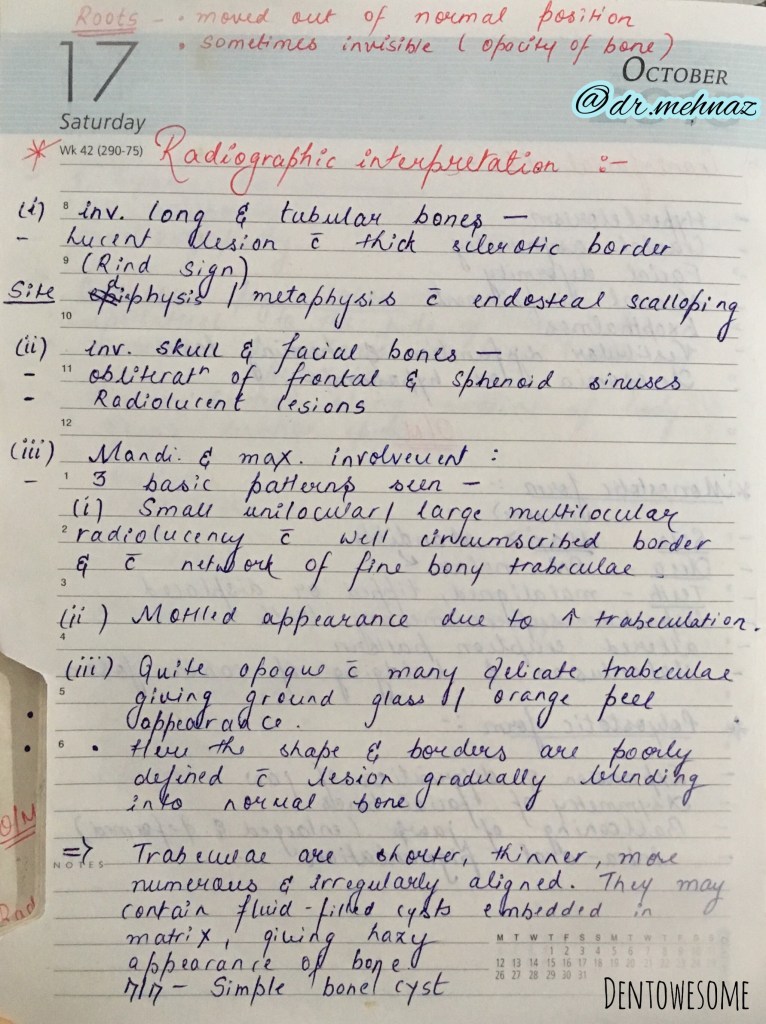 Roots - • moved out of normal position
• sometimes invisible (opocity of bone)
17
OCTOBER
@dr.mehnaz
Saturday
Wk 42 (290-75)
* Radiographic interpretation :-
(i) 8 inv. long & tubular bones —
- Lucent lesion c̄ thick sclerotic border
9 (Rind sign)
Site diphysis / metaphysis c̄ endosteal scalloping
10
(ii) inv. skull & facial bones —
- 11 obliteratⁿ of frontal & sphenoid sinuses
- Radiolucent lesions
12
(iii) Mandi. & max. involvement :
- 1 3 basic patterns seen —
(i) Small unilocular/ large multilocular
2 radiolucency c̄ well circumscribed border
& c̄ network of fine bony trabeculae.
3
(ii) Mottled appearance due to ↑ trabeculation.
4
(iii) Quite opaque c̄ many delicate trabeculae
5 giving ground glass / orange peel
appearance.
6 • Here the shape & borders are poorly
defined c̄ lesion gradually blending
into normal bone
O/M
=> Trabeculae are shorter, thinner, more
NOTES
numerous & irregularly aligned. They may
Rad
contain fluid-filled cysts embedded in
matrix, giving hazy
appearance of bone.
7/7 - Simple bone cyst
M T W T F S S M T W T F S S
1 2 3 4 5 6 7 8 9 10 11
12 13 14 15 16 17 18 19 20 21 22 23 24 25
26 27 28 29 30 31
DENTOWESOME